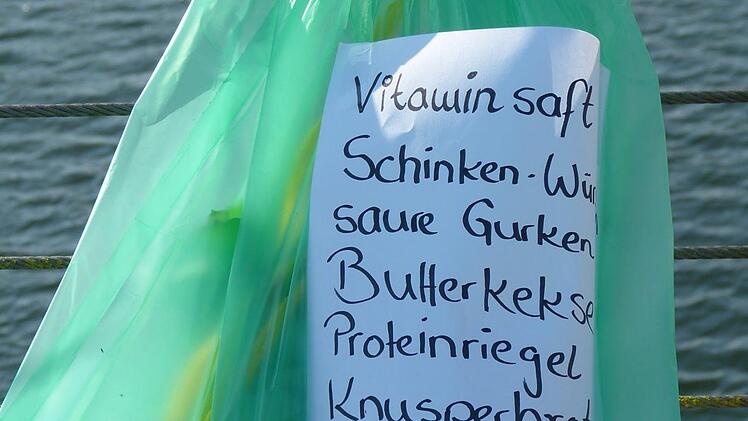 Vitaminsaft
Schinken-Wür
saure Gurken
Butterkekse
Proteinriegel
Knusperbrot